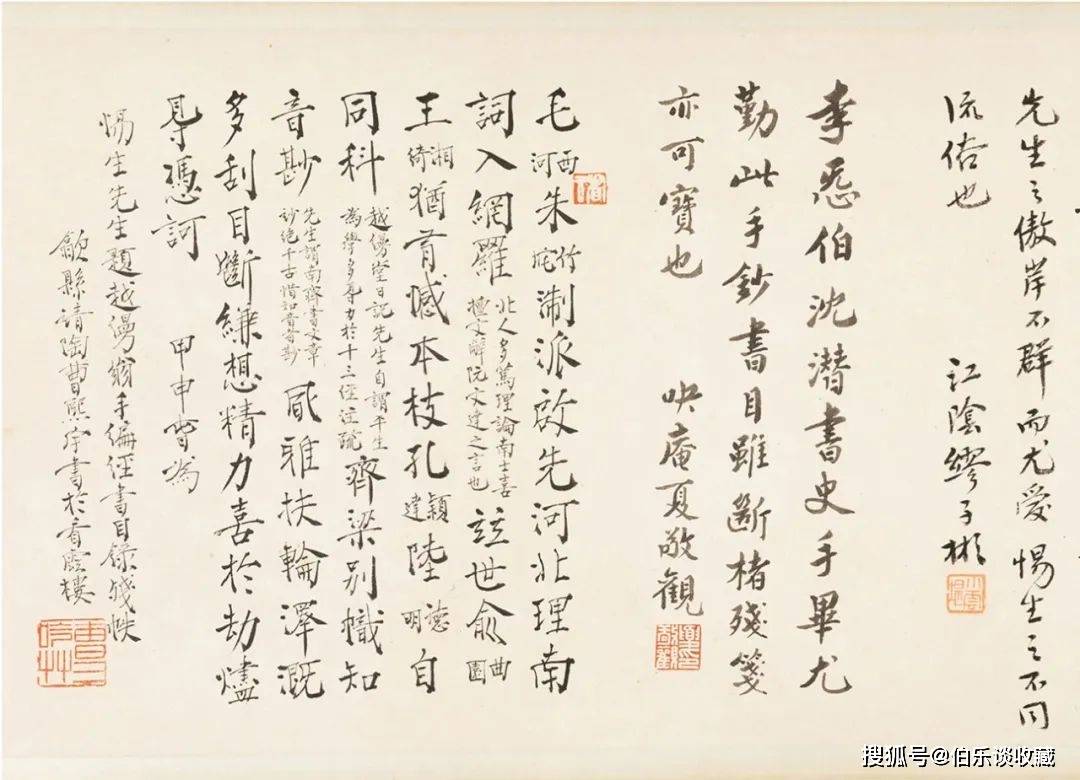 先生之傲岸不群而尤爱惕生之不同
流俗也　江陰繆子彬
李炁伯沈潛書史手畢尤
勤此手鈔書目雖斷楮殘箋
亦可寶也　吷庵夏敬觀
毛西河朱竹垞淛派啟先河北理南
詞入網羅北人多篤理論南士喜摭文辭阮文達之言也茲世俞曲園
王湘綺猶肯憾本枝孔穎達陸德明自
同科越縵堂日記先生自謂平生為學多專力於十三經注疏齊梁別幟知
音尠先生謂南齊書文章玅絕千古惜知音者尠風雅扶輪澤溉
多刮目斷縑想精力喜於劫燼
导憑訶　甲申
惕生先生題越縵翁手編經書目錄殘帙
歙縣請陶曹熙宇書於看雲樓
搜狐号@伯乐谈收藏